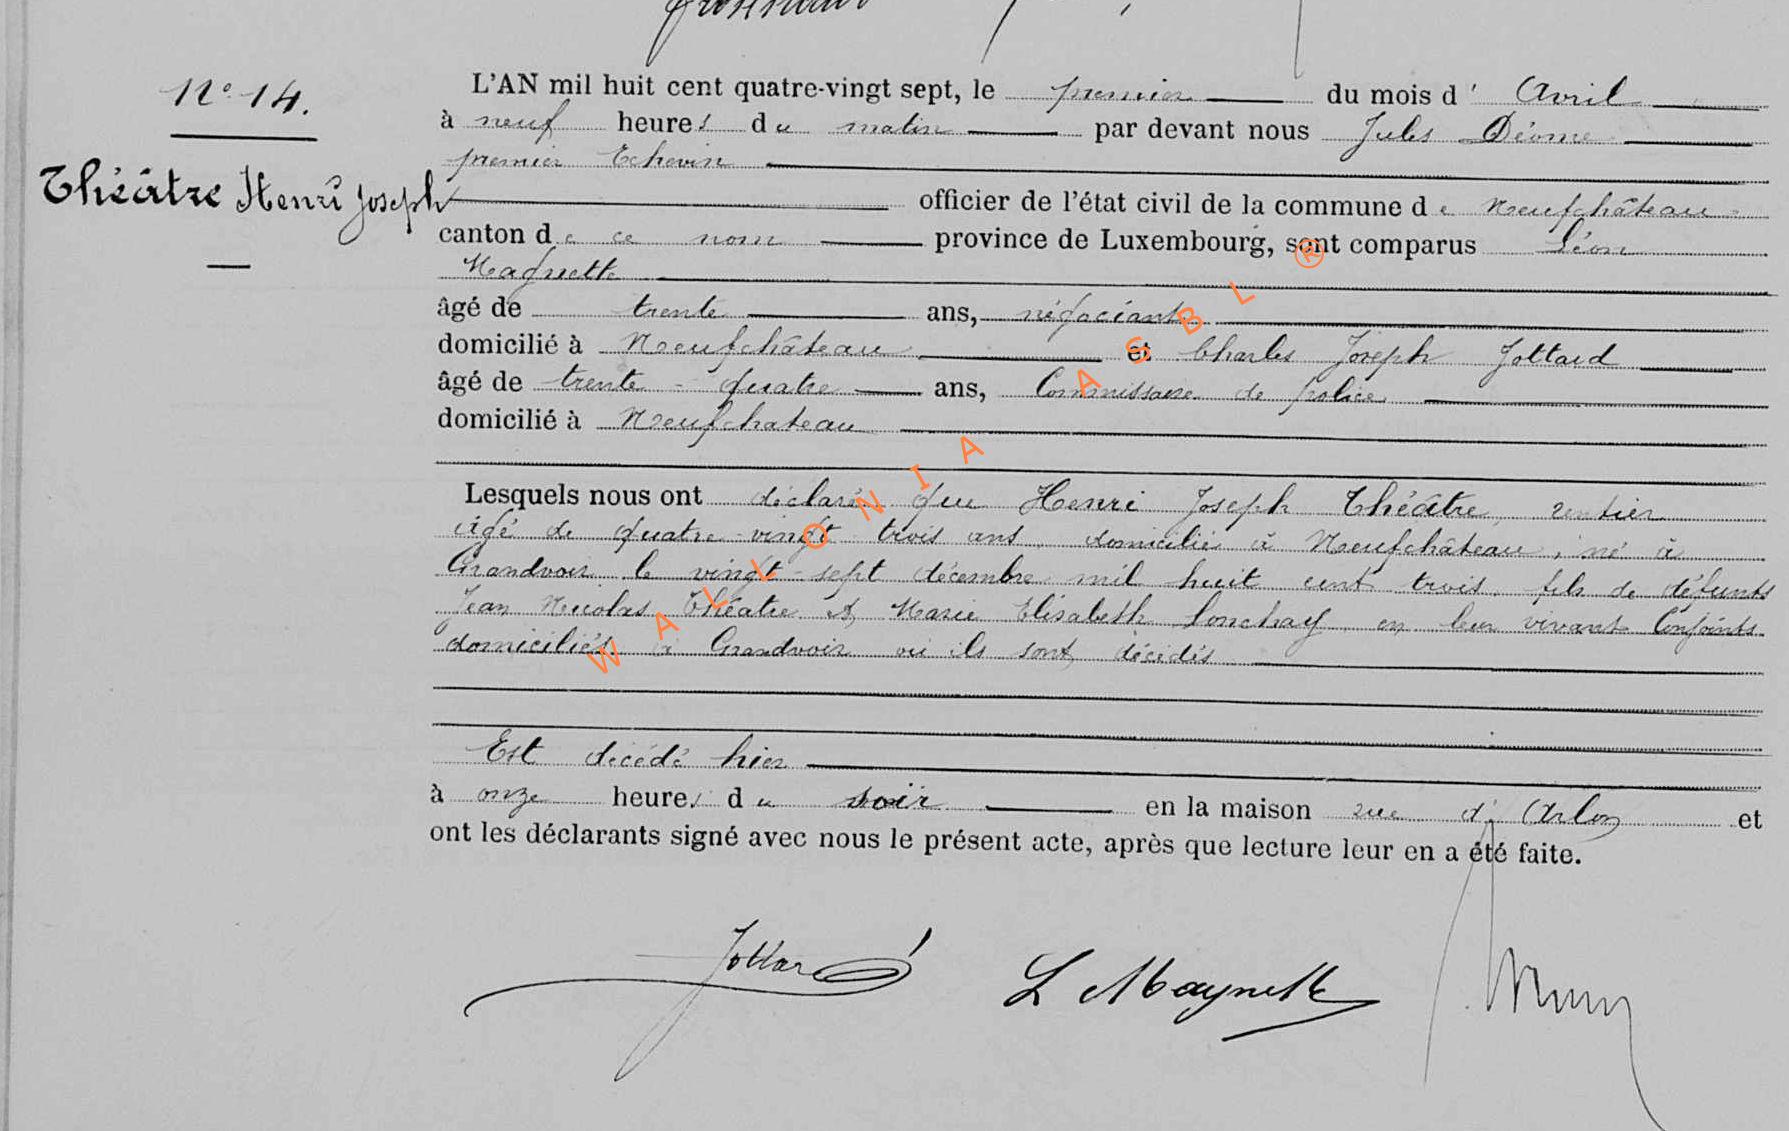 N° 14.
Théâtre Henri Joseph
L'AN mil huit cent quatre-vingt sept, le premier du mois d' Avril
à neuf heures du matin par devant nous Jules Déome
premier Echevin
officier de l'état civil de la commune de Neufchâteau
canton de ce nom province de Luxembourg, sont comparus Léon
Magnette
âgé de trente ans, négociant
domicilié à Neufchâteau et Charles Joseph Jottard
âgé de trente-quatre ans, Commissaire de police
domicilié à Neufchateau
Lesquels nous ont déclaré que Henri Joseph Théâtre, rentier
âgé de quatre-vingt trois ans, domicilié à Neufchâteau, né à
Grandvoir le vingt-sept décembre mil huit cent trois, fils de défunts
Jean Nicolas Théatre & Marie Elisabeth Lonchay en leur vivant Conjoints
domiciliés à Grandvoir où ils sont décédés
Est décédé hier
à onze heures du soir en la maison rue d'Arlon et
ont les déclarants signé avec nous le présent acte, après que lecture leur en a été faite.
Jottard L Magnette
WALLONIA ASBL ®